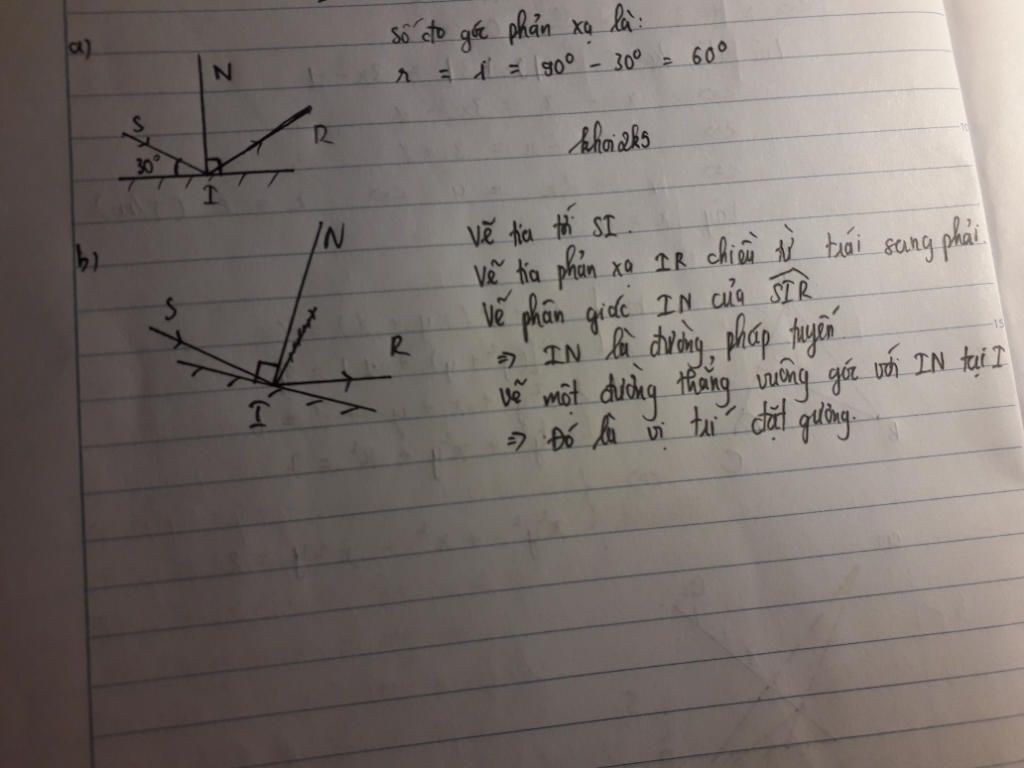 a)
Số đo góc phản xạ là:
r = i = 90° - 30° = 60°
N
S
R
30°
I
khoi2k5
b)
N
S
R
I
Vẽ tia tới SI.
Vẽ tia phản xạ IR chiều từ trái sang phải
Vẽ phân giác IN của SIR
=> IN là đường pháp tuyến.
Vẽ một đường thẳng vuông góc với IN tại I
=> Đó là vị trí đặt gương.